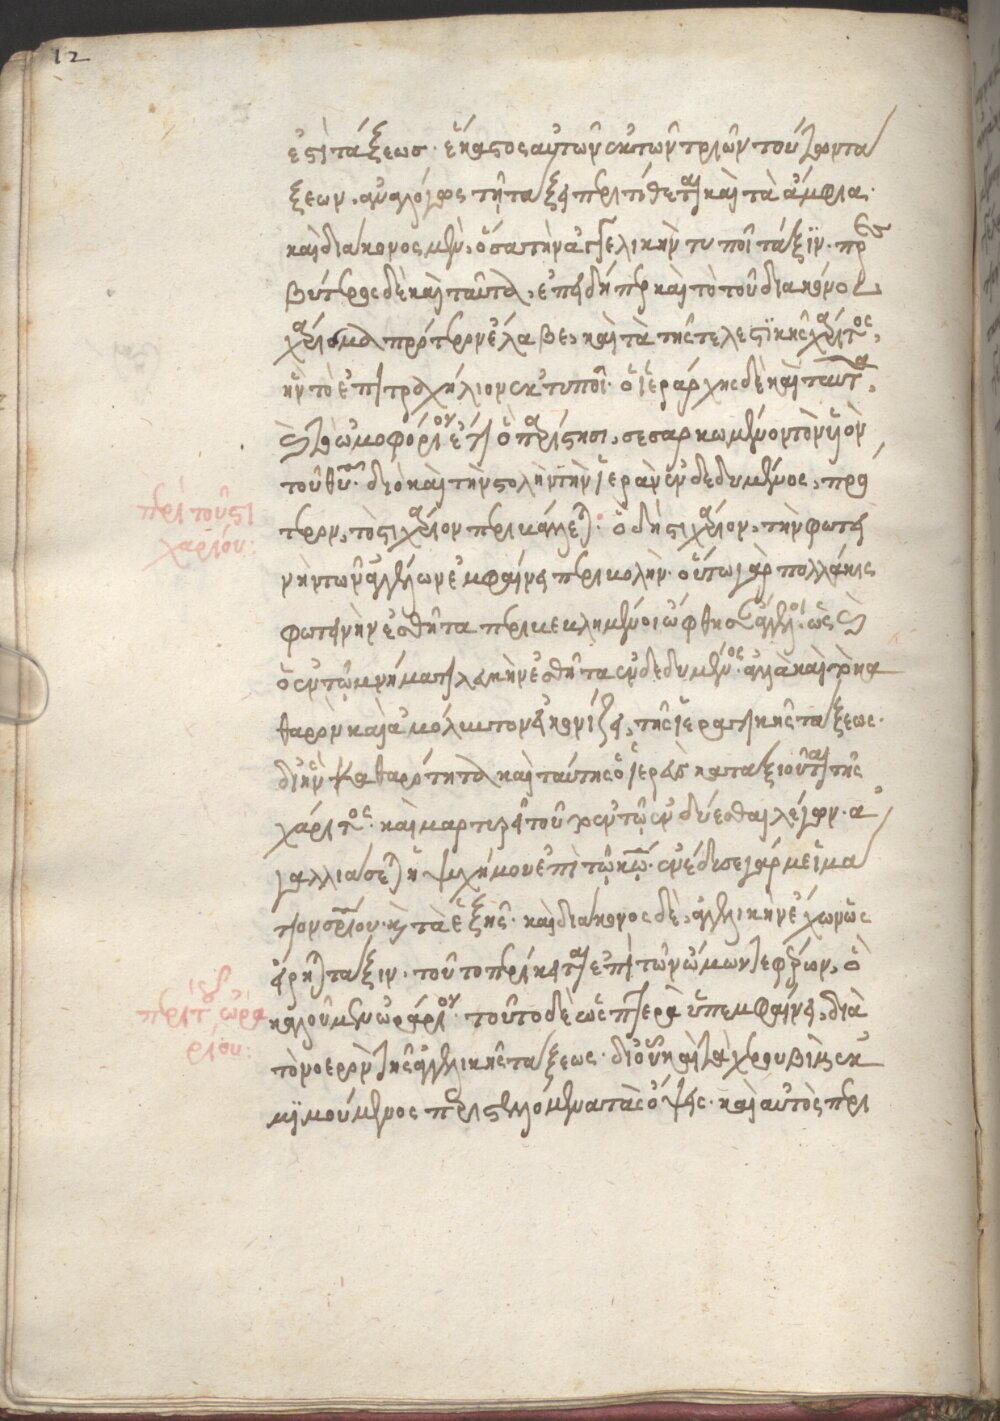 12
ἐστὶ τάξεως. ἕκαστος αὐτῶν ἐκ τῶν τριῶν τούτων τα
ξεων, ἀναλόγως τῆ τάξει περιτίθεται καὶ τὰ ἄμφια.
καὶ διάκονος μὲν, ὅσα τὴν ἀγγελικὴν τυποῖ τάξϊν. πρεσ
βύτερος δὲ καὶ ταῦτα, ἐπειδήπερ καὶ τὸ τοῦ διακόνου
χάρισμα πρότερον ἔλαβε, καὶ τὰ τῆς τελεστϊκῆς χάριτος,
ἣν τὸ ἐπιτραχήλιον ἐκτυποῖ. ὁ ἱεράρχης δὲ καὶ ταῦτα,
καὶ τὸ ὠμοφόριον ἔτι ὃ παρίστησι, σεσαρκωμένον τὸν υἱὸν
τοῦ θυ. διὸ καὶ τὴν στολὴν τὴν ἱερὰν ἐνδεδυμένος, πρό
τερον, τὸ στιχάριον περικάλλεται. ὃ δὴ στιχάριον, τὴν φωτει
νὴν τῶν ἀγγέλων ἐμφαίνει περιβολὴν. οὕτω γὰρ πολλάκις
φωτεινὴν ἐσθῆτα περιβεβλημένοι ὤφθησαν ἄγγελοι. ὡς καὶ
ὁ ἐν τῶ μνήματι λευκὴν ἐσθῆτα ἐνδεδυμένος. ἀλλὰ καὶ τὸ κα
θαρὸν καὶ ἀμόλυντον εἰκονίζει, τῆς ἱερατικῆς τάξεως.
δι' ἣν καθαρότητα καὶ ταύτης ὁ ἱερεὺς καταξιοῦται τῆς
χάριτος. καὶ μαρτυρεῖ τοῦτο ἐν τῶ ἐνδύεσθαι λέγων. ἀ
γαλλιάσεται ἡ ψυχή μου ἐπὶ τῶ κω. ἐνέδυσε γάρ με ἱμά
τιον σρίου. καὶ τὰ ἑξῆς. καὶ διάκονος δὲ, ἀγγελικὴν ἔχων ὡς
εἴρηται τάξιν. τοῦτο περίκειται ἐπὶ τῶν ὤμων ἱερὸν, ὃ
καλοῦμεν ὡράριον. τοῦτο δὲ ὡς πτερὰ ὑπεμφαίνει, διὰ
τὸ νοερὸν τῆς ἀγγελικῆς τάξεως. διὸ οὖν καὶ τὰ χερουβὶμ ἐκ
μϊμούμενος περιστελλόμενα τὰς ὄψεις. καὶ αὐτὸς περι
περὶ τοῦ στι
χαρίου:
περὶ τοῦ ὠρα
ρίου: